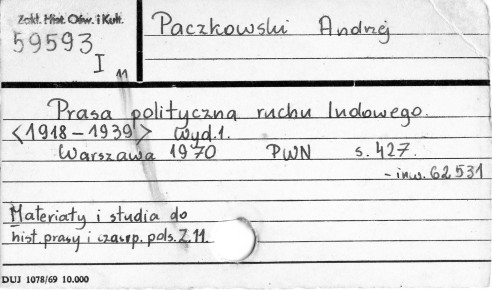 Zakł. Hist. Ośw. i Kult.
59593
I
11
Paczkowski Andrzej
Prasa polityczna ruchu ludowego.
<1918-1939> Wyd.1.
Warszawa 1970 PWN s. 427.
- inw. 62531
Materiały i studia do
hist. prasy i czasop. pols. Z. 11.
DUJ 1078/69 10.000